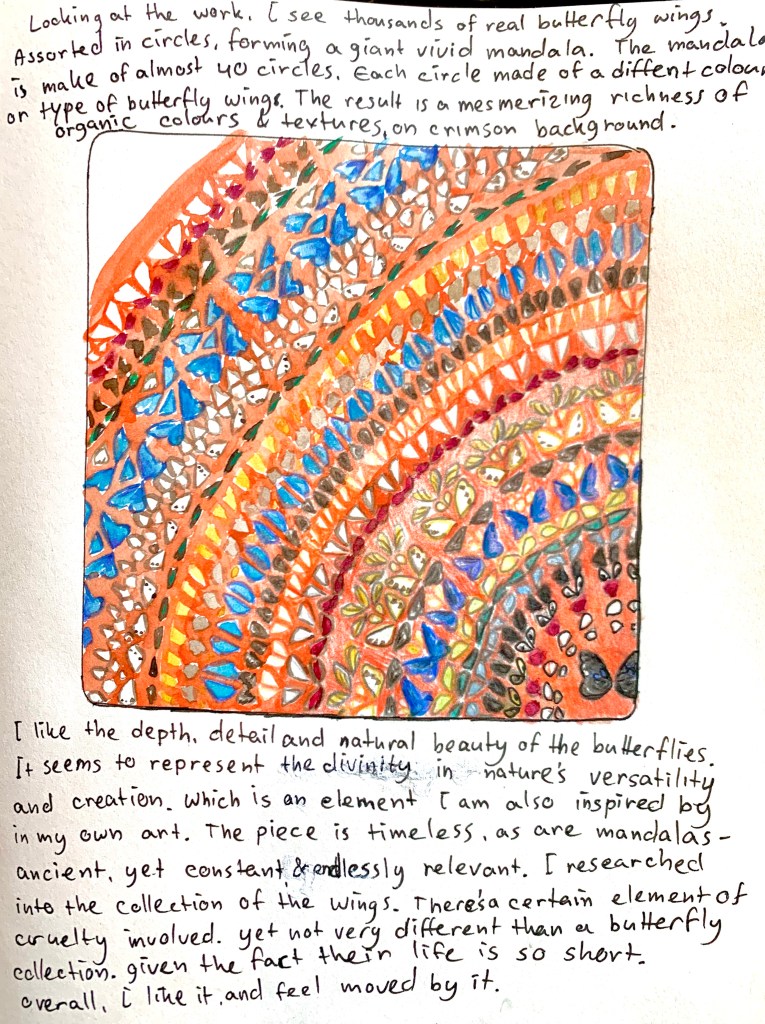 Looking at the work, I see thousands of real butterfly wings.
Assorted in circles, forming a giant vivid mandala. The mandala
is make of almost 40 circles. Each circle made of a diffent colour
or type of butterfly wings. The result is a mesmerizing richness of
organic colours & textures, on crimson background.
I like the depth, detail and natural beauty of the butterflies.
It seems to represent the divinity in nature's versatility
and creation. Which is an element I am also inspired by
in my own art. The piece is timeless, as are mandalas -
ancient, yet constant & endlessly relevant. I researched
into the collection of the wings. There's a certain element of
cruelty involved. yet not very different than a butterfly
collection. given the fact their life is so short.
overall, I like it, and feel moved by it.